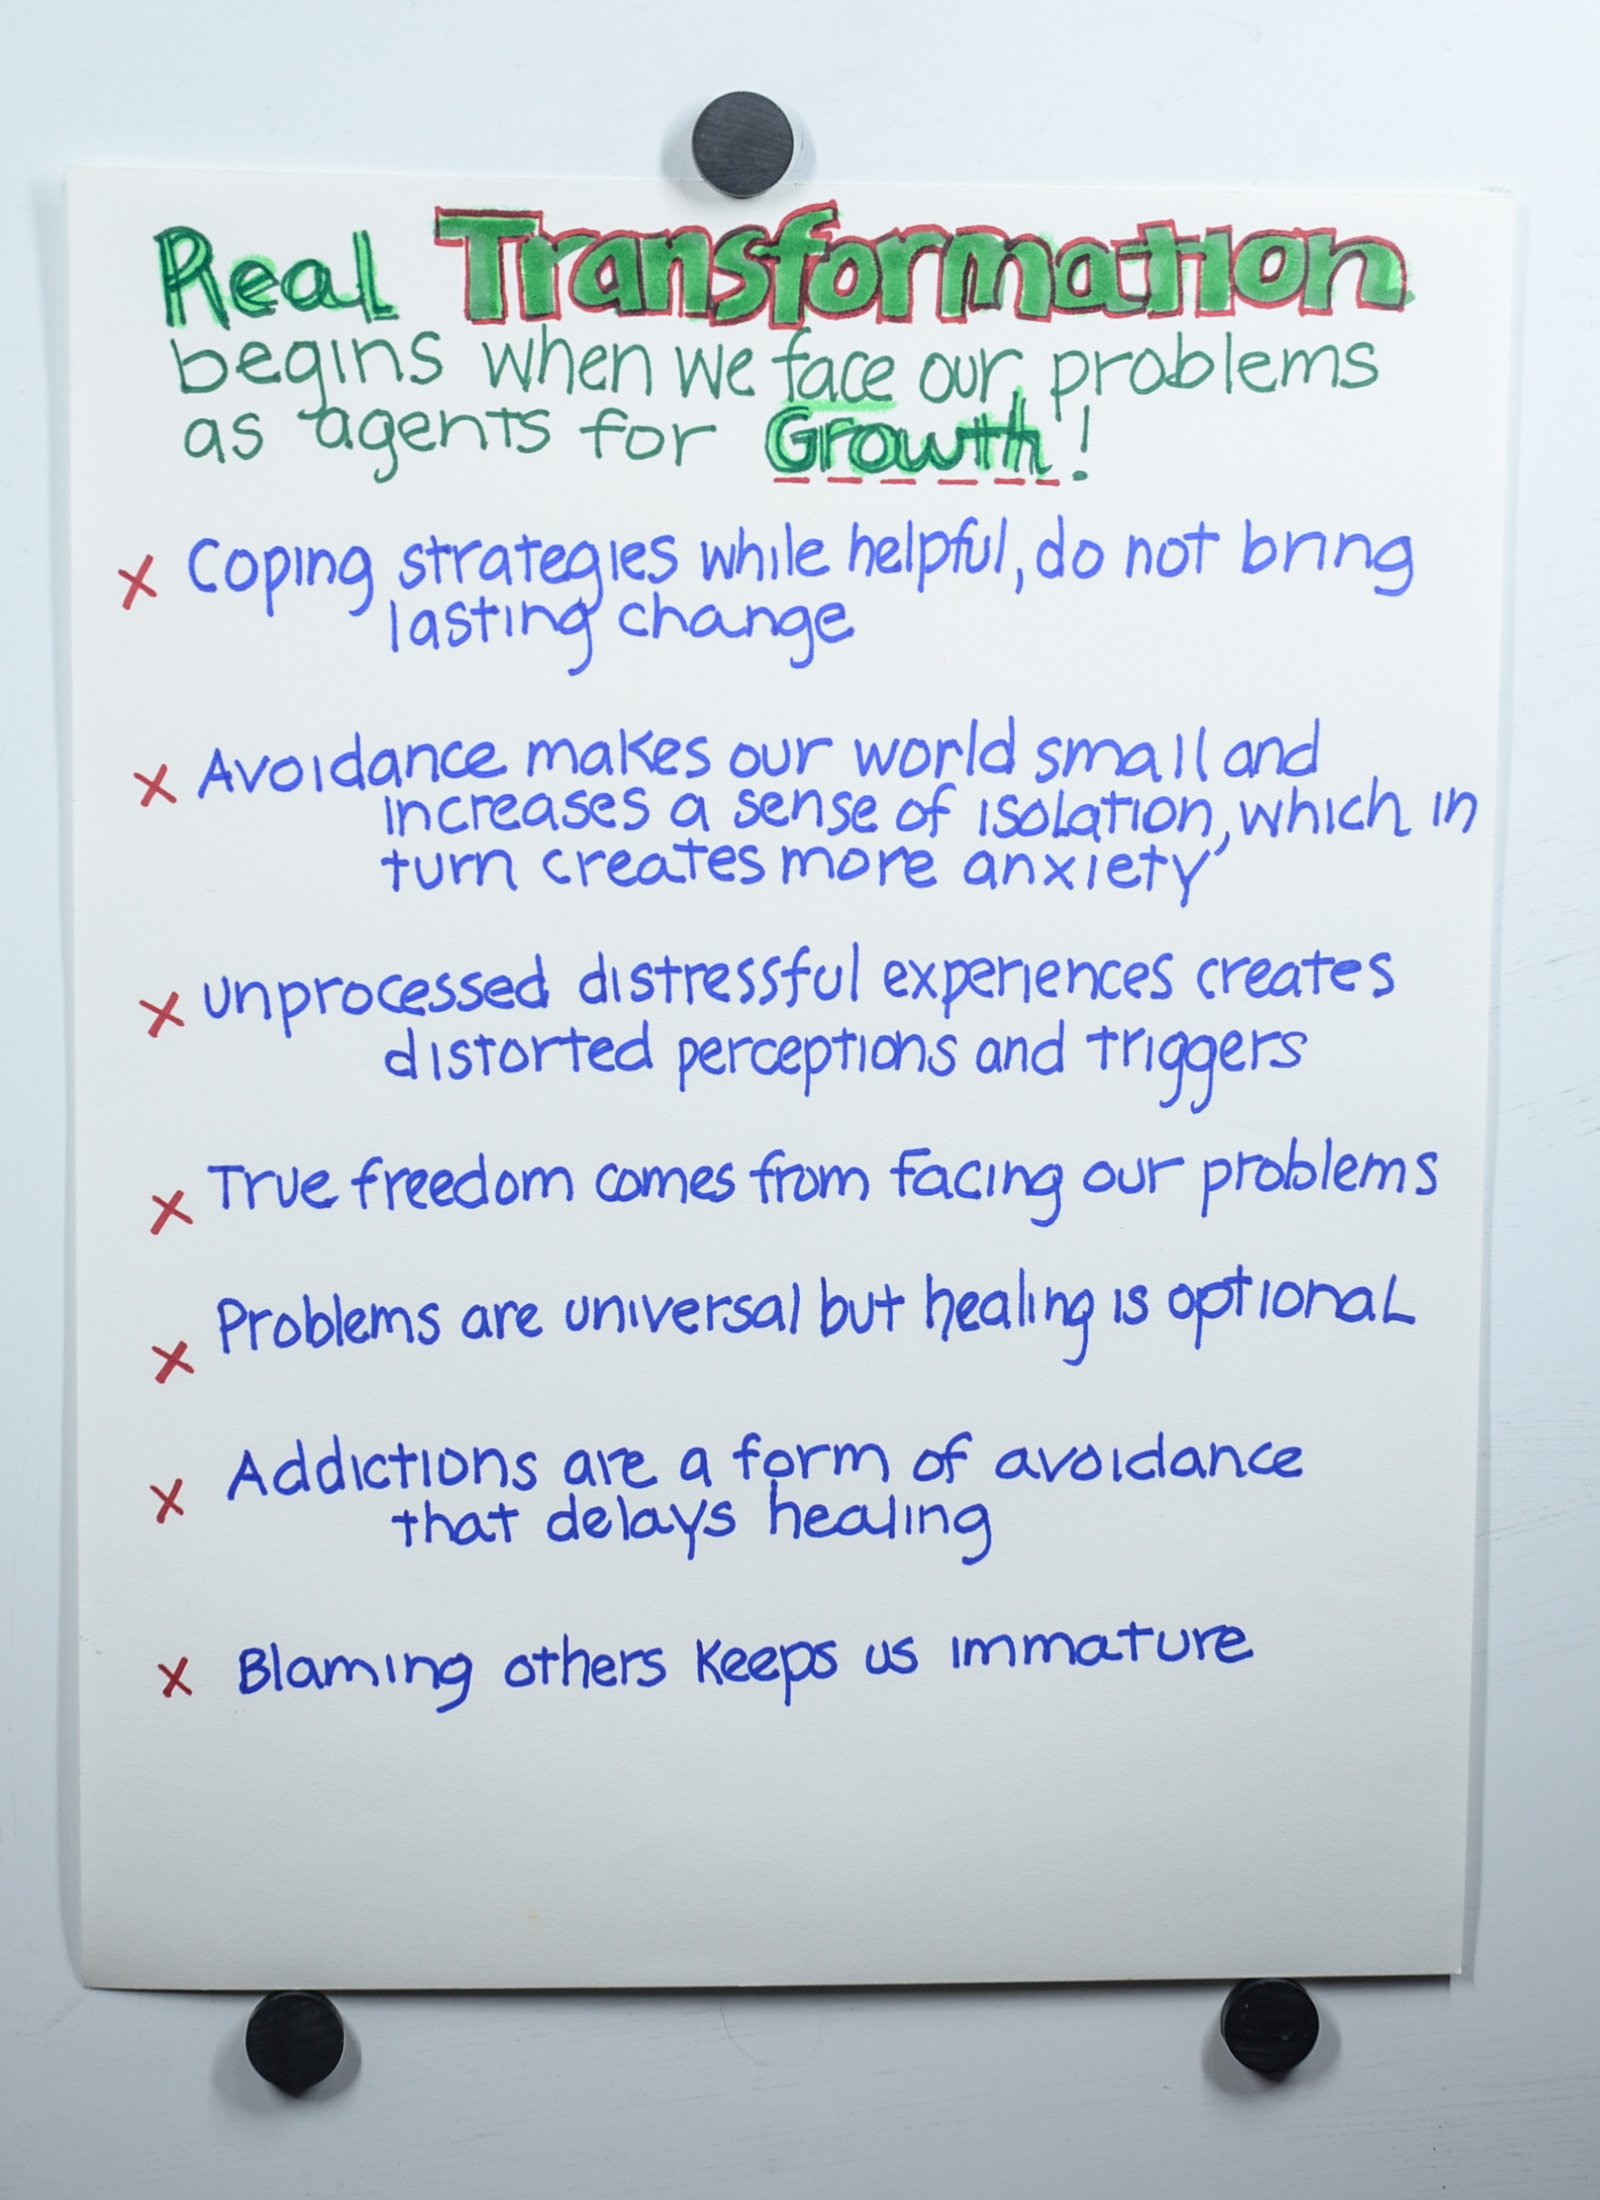 Real Transformation
begins when we face our problems
as agents for Growth!
x Coping strategies while helpful, do not bring
lasting change
x Avoidance makes our world small and
increases a sense of isolation, which in
turn creates more anxiety
x unprocessed distressful experiences creates
distorted perceptions and triggers
x True freedom comes from facing our problems
x Problems are universal but healing is optional
x Addictions are a form of avoidance
that delays healing
x Blaming others keeps us immature